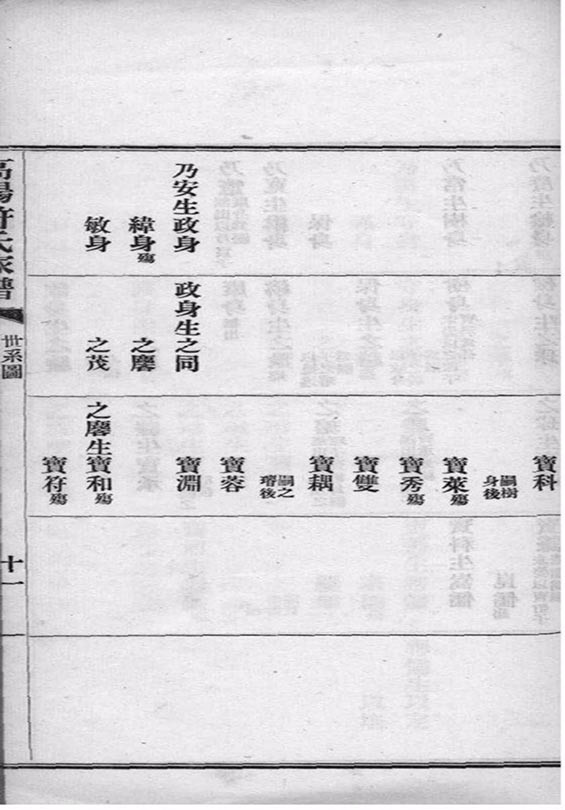 乃安生政身
緯身殤
敏身
政身生之同
之麐
之茂
寶科
嗣樹身後
寶萊殤
寶秀殤
寶雙
寶耦
嗣之瑨後
寶蓉
寶淵
之麐生寶和殤
寶符殤
高陽許氏家譜
世系圖
十一